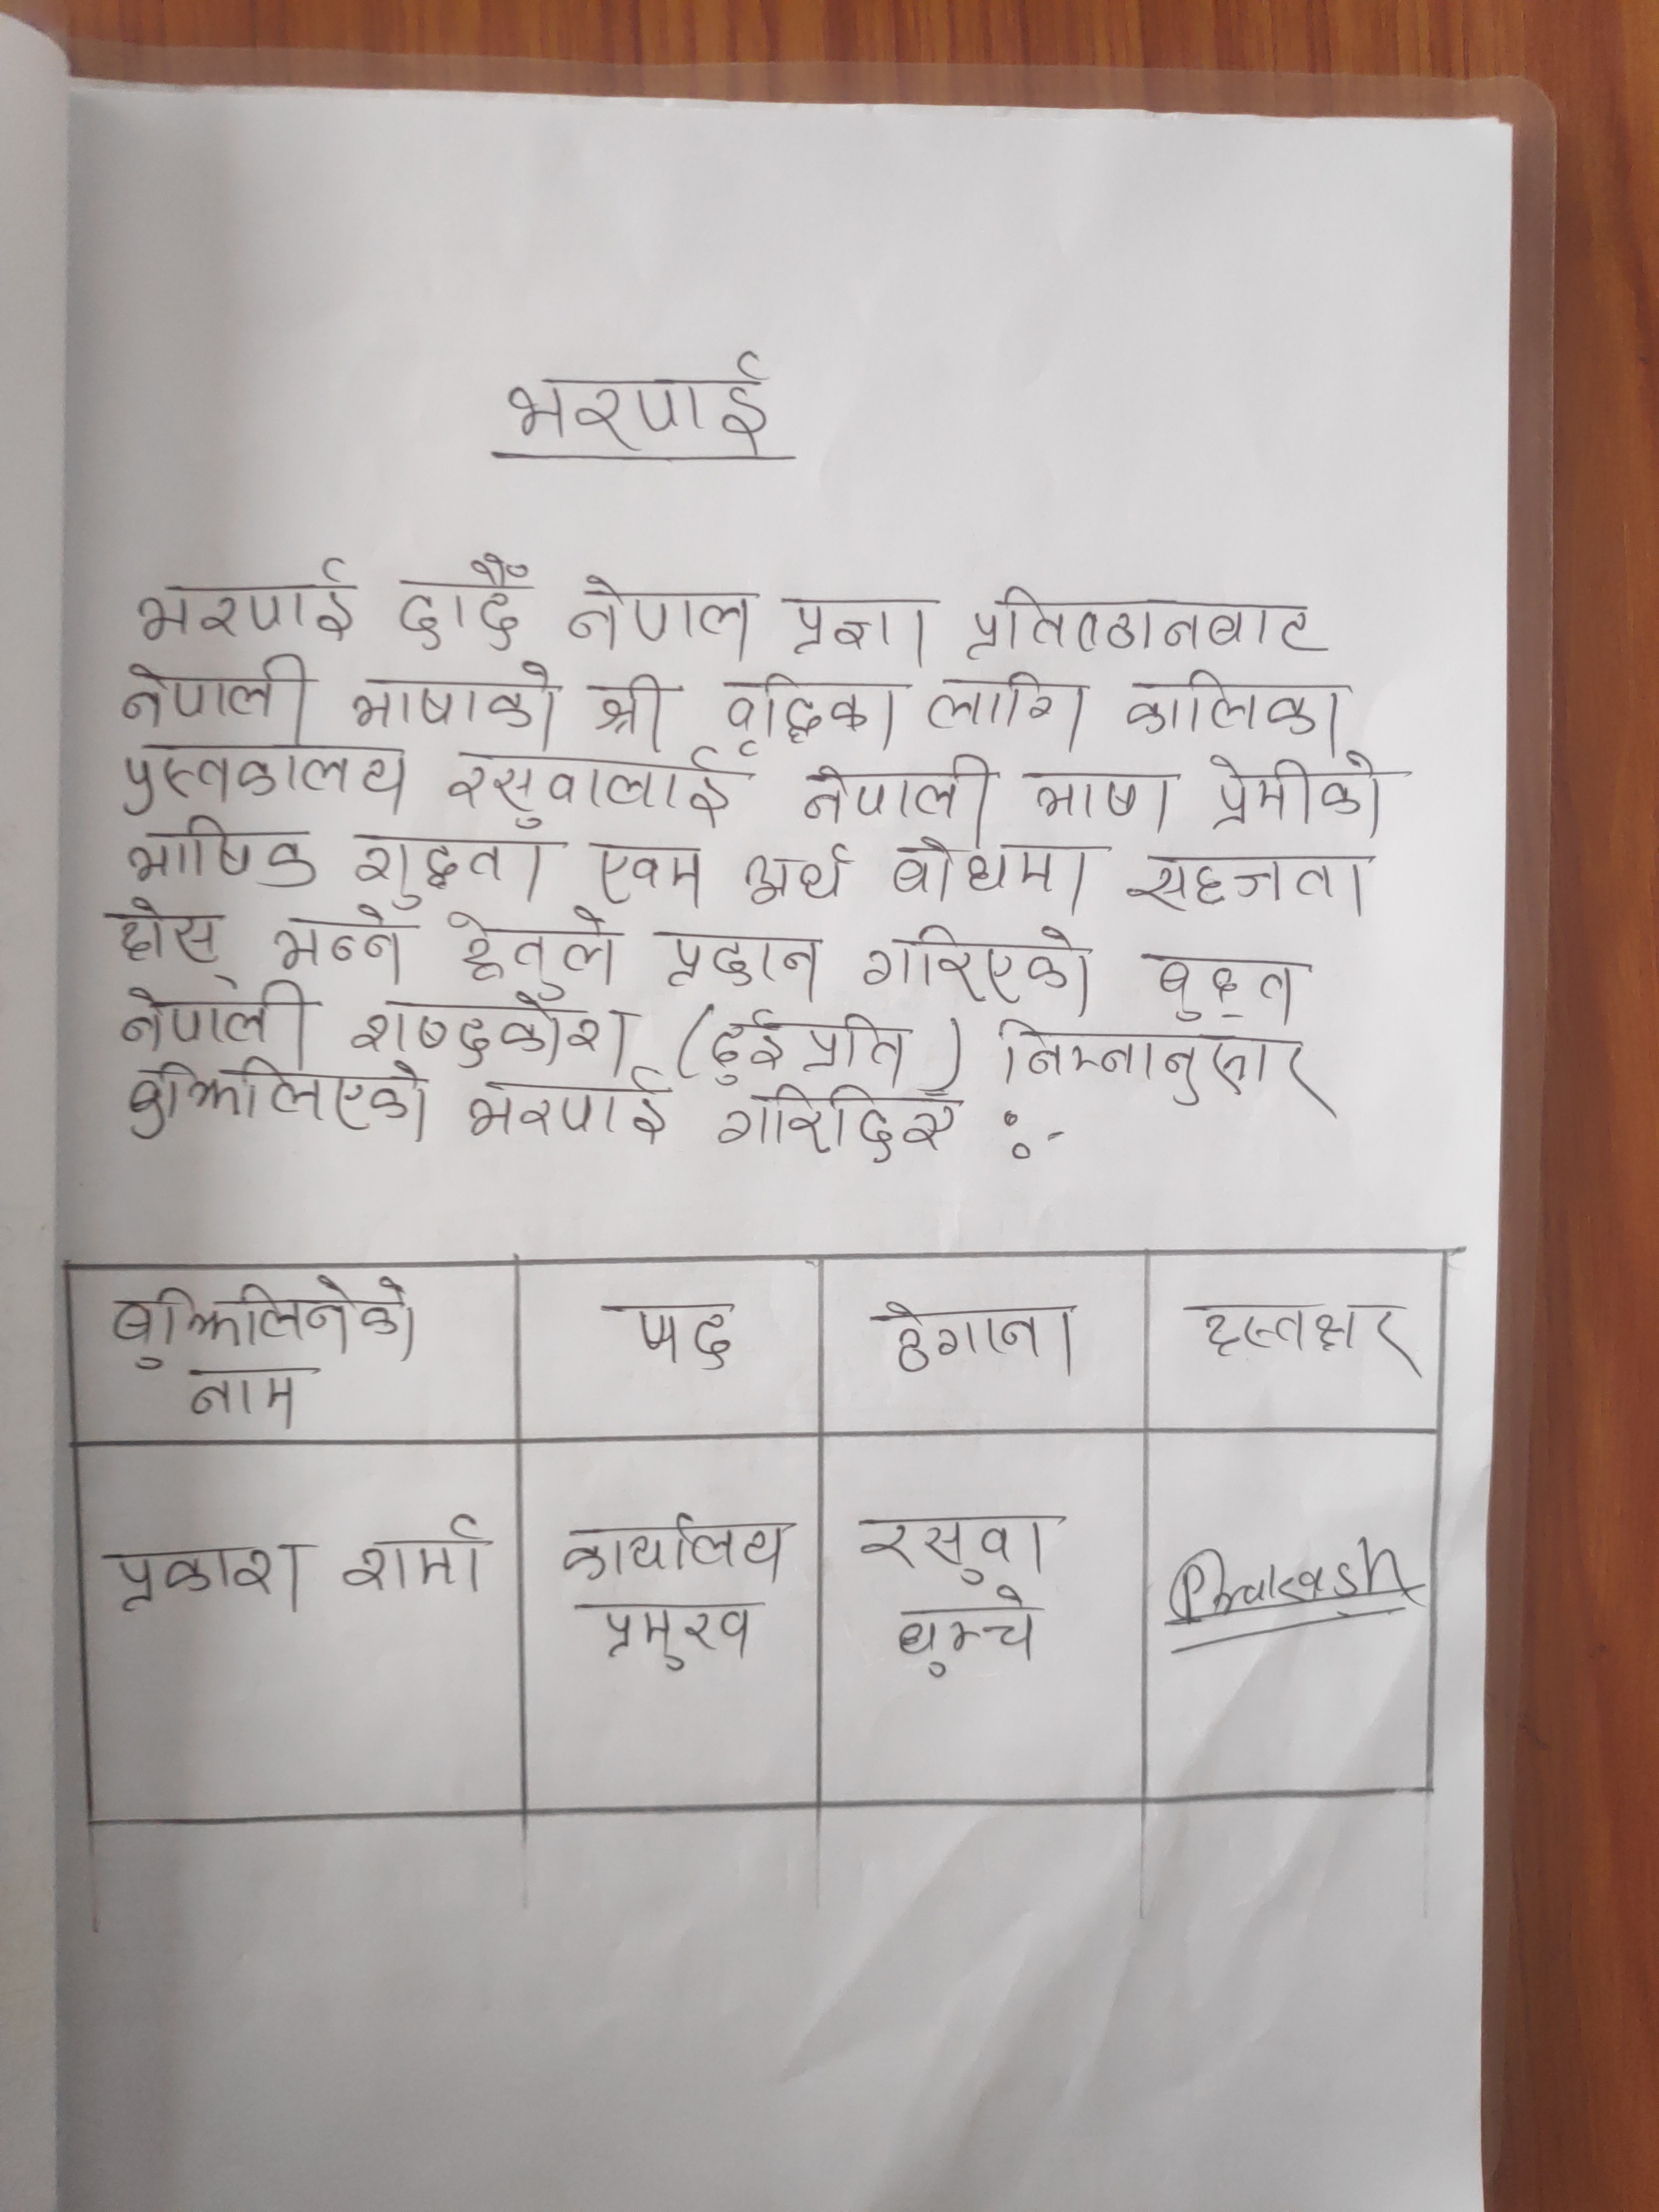 भरपाई
भरपाई दादैँ नेपाल प्रज्ञा प्रतिष्ठानबाट
नेपाली भाषाको श्री वृद्धिका लागि कालिका
पुस्तकालय रसुवालाई नेपाली भाषा प्रेमीको
भाषिक शुद्धता एवम अर्थ बोधमा सहजता
होस् भन्ने हेतुले प्रदान गरिएको बृहत
नेपाली शब्दकोश (दुई प्रति) निम्नानुसार
बुझिलिएको भरपाई गरिदिएँ :-
बुझिलिनेको पद ठेगाना हस्तक्षर
नाम
प्रकाश शर्मा कार्यालय रसुवा Prakash
प्रमुख धुन्चे